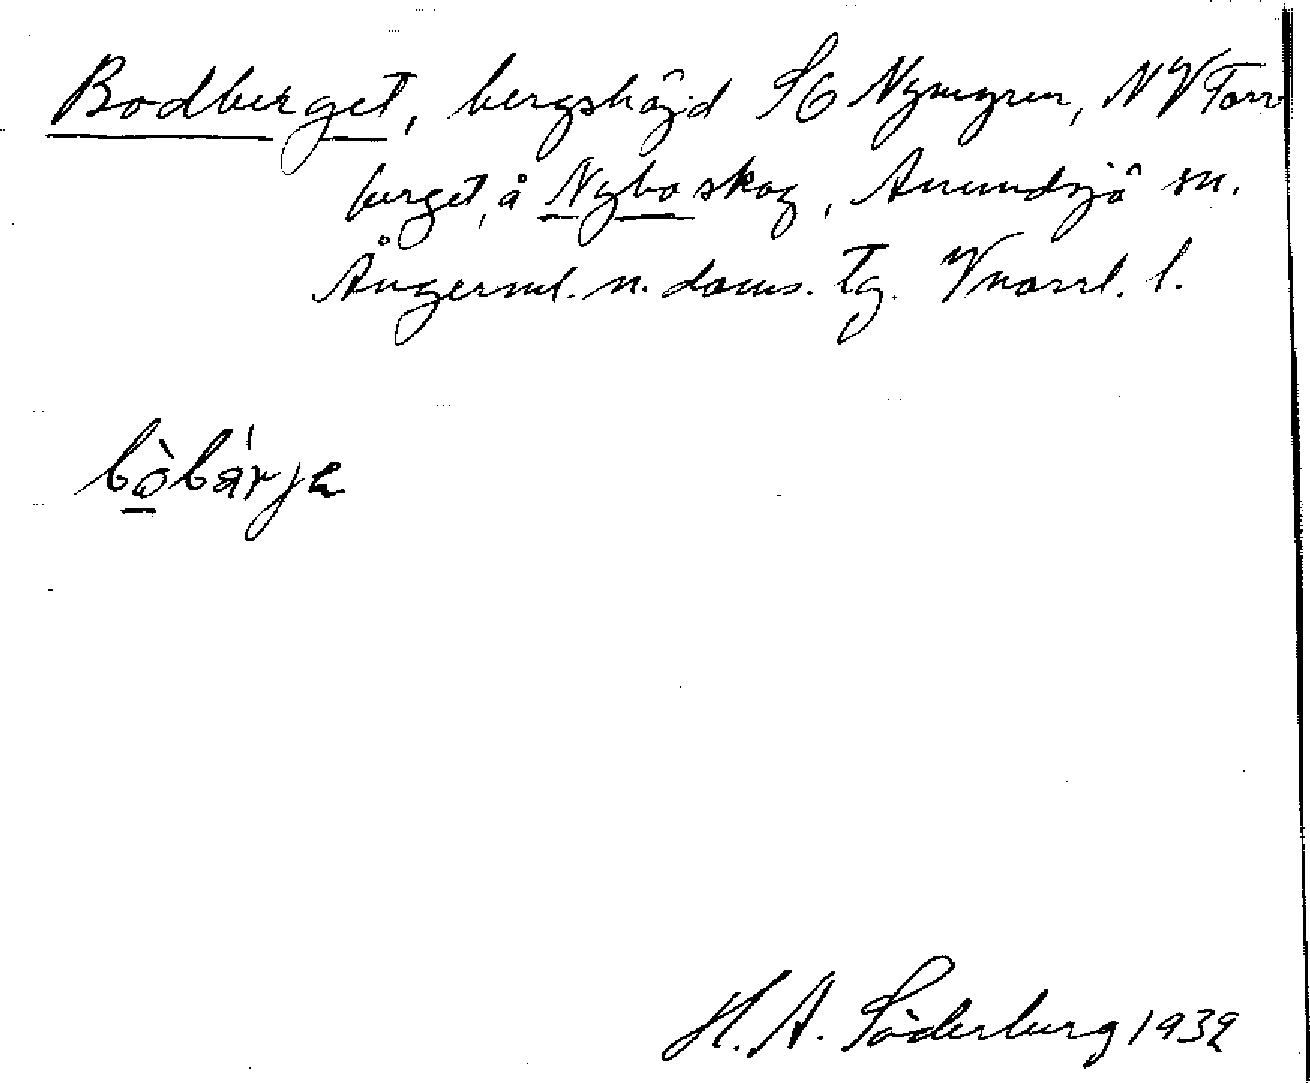 Bodberget, bergshöjd SO Nymyren, NV Torr
berget, å Nybo skog, Anundsjö sn.
Ångerml. n. doms. Tg. Vnorrl. l.
bòbárja
H. A. Söderberg 1932